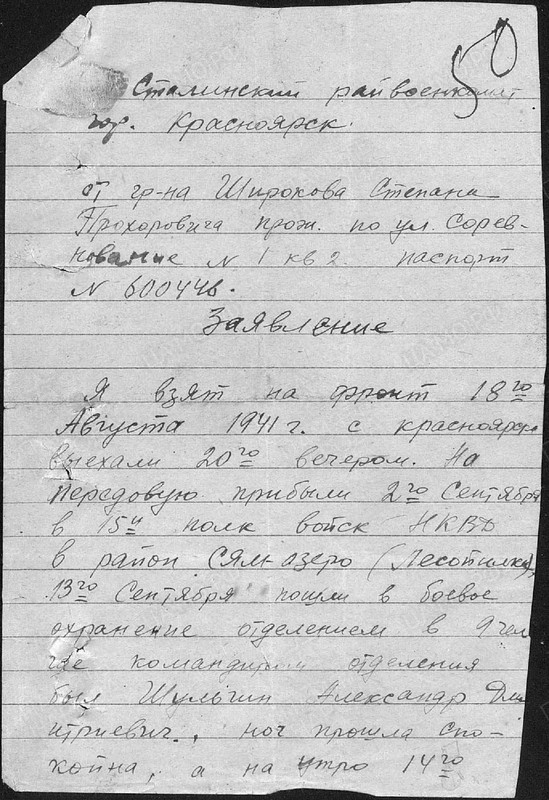 50
Сталинский райвоенкомат
гор. Красноярск.
от гр-на Широкова Степана
Прохоровича прож. по ул. Сорев-
нование N 1 кв 2. паспорт
N 600446.
Заявление
Я взят на фронт 18го
Августа 1941 г. с красноярска
выехали 20го вечером. На
передовую прибыли 2го Сентября
в 15й полк войск НКВД
в район Сям-озеро (Лесопилка),
13го Сентября пошли в боевое
охранение отделением в 9 чел
где командиром отделения
был Шульгин Александр Дми
итриевич., ноч прошла спо-
койна, а на утро 14го